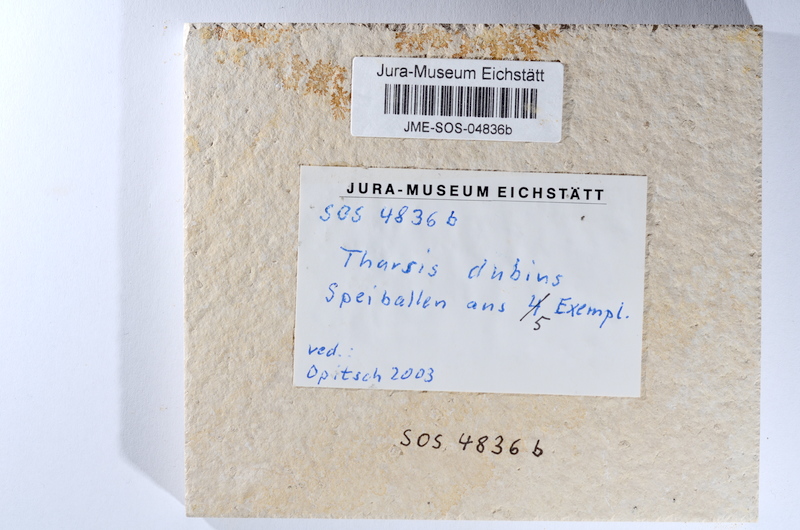 Jura-Museum Eichstätt
JME-SOS-04836b
JURA-MUSEUM EICHSTÄTT
SOS 4836 b
Tharsis dubius
Speiballen aus 4/5 Exempl.
ved.:
Opitsch 2003
SOS 4836 b